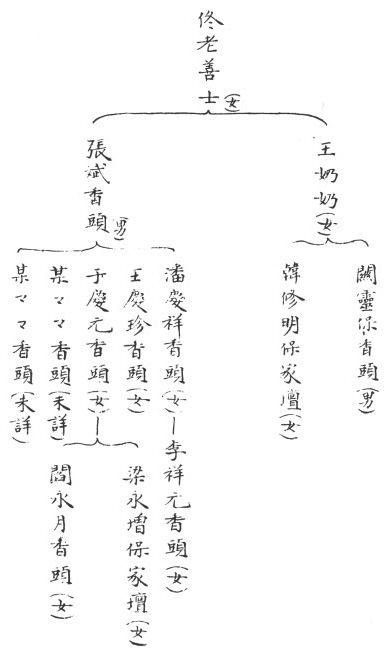 佟老善士(女)
王奶奶(女)
張斌香頭(男)
關靈保香頭(男)
韓修明保家壇(女)
潘慶祥香頭(女)—李祥元香頭(女)
王慶珍香頭(女)
于慶元香頭(女)
某ママ香頭(未詳)
某ママ香頭(未詳)
梁永增保家壇(女)
閻永月香頭(女)